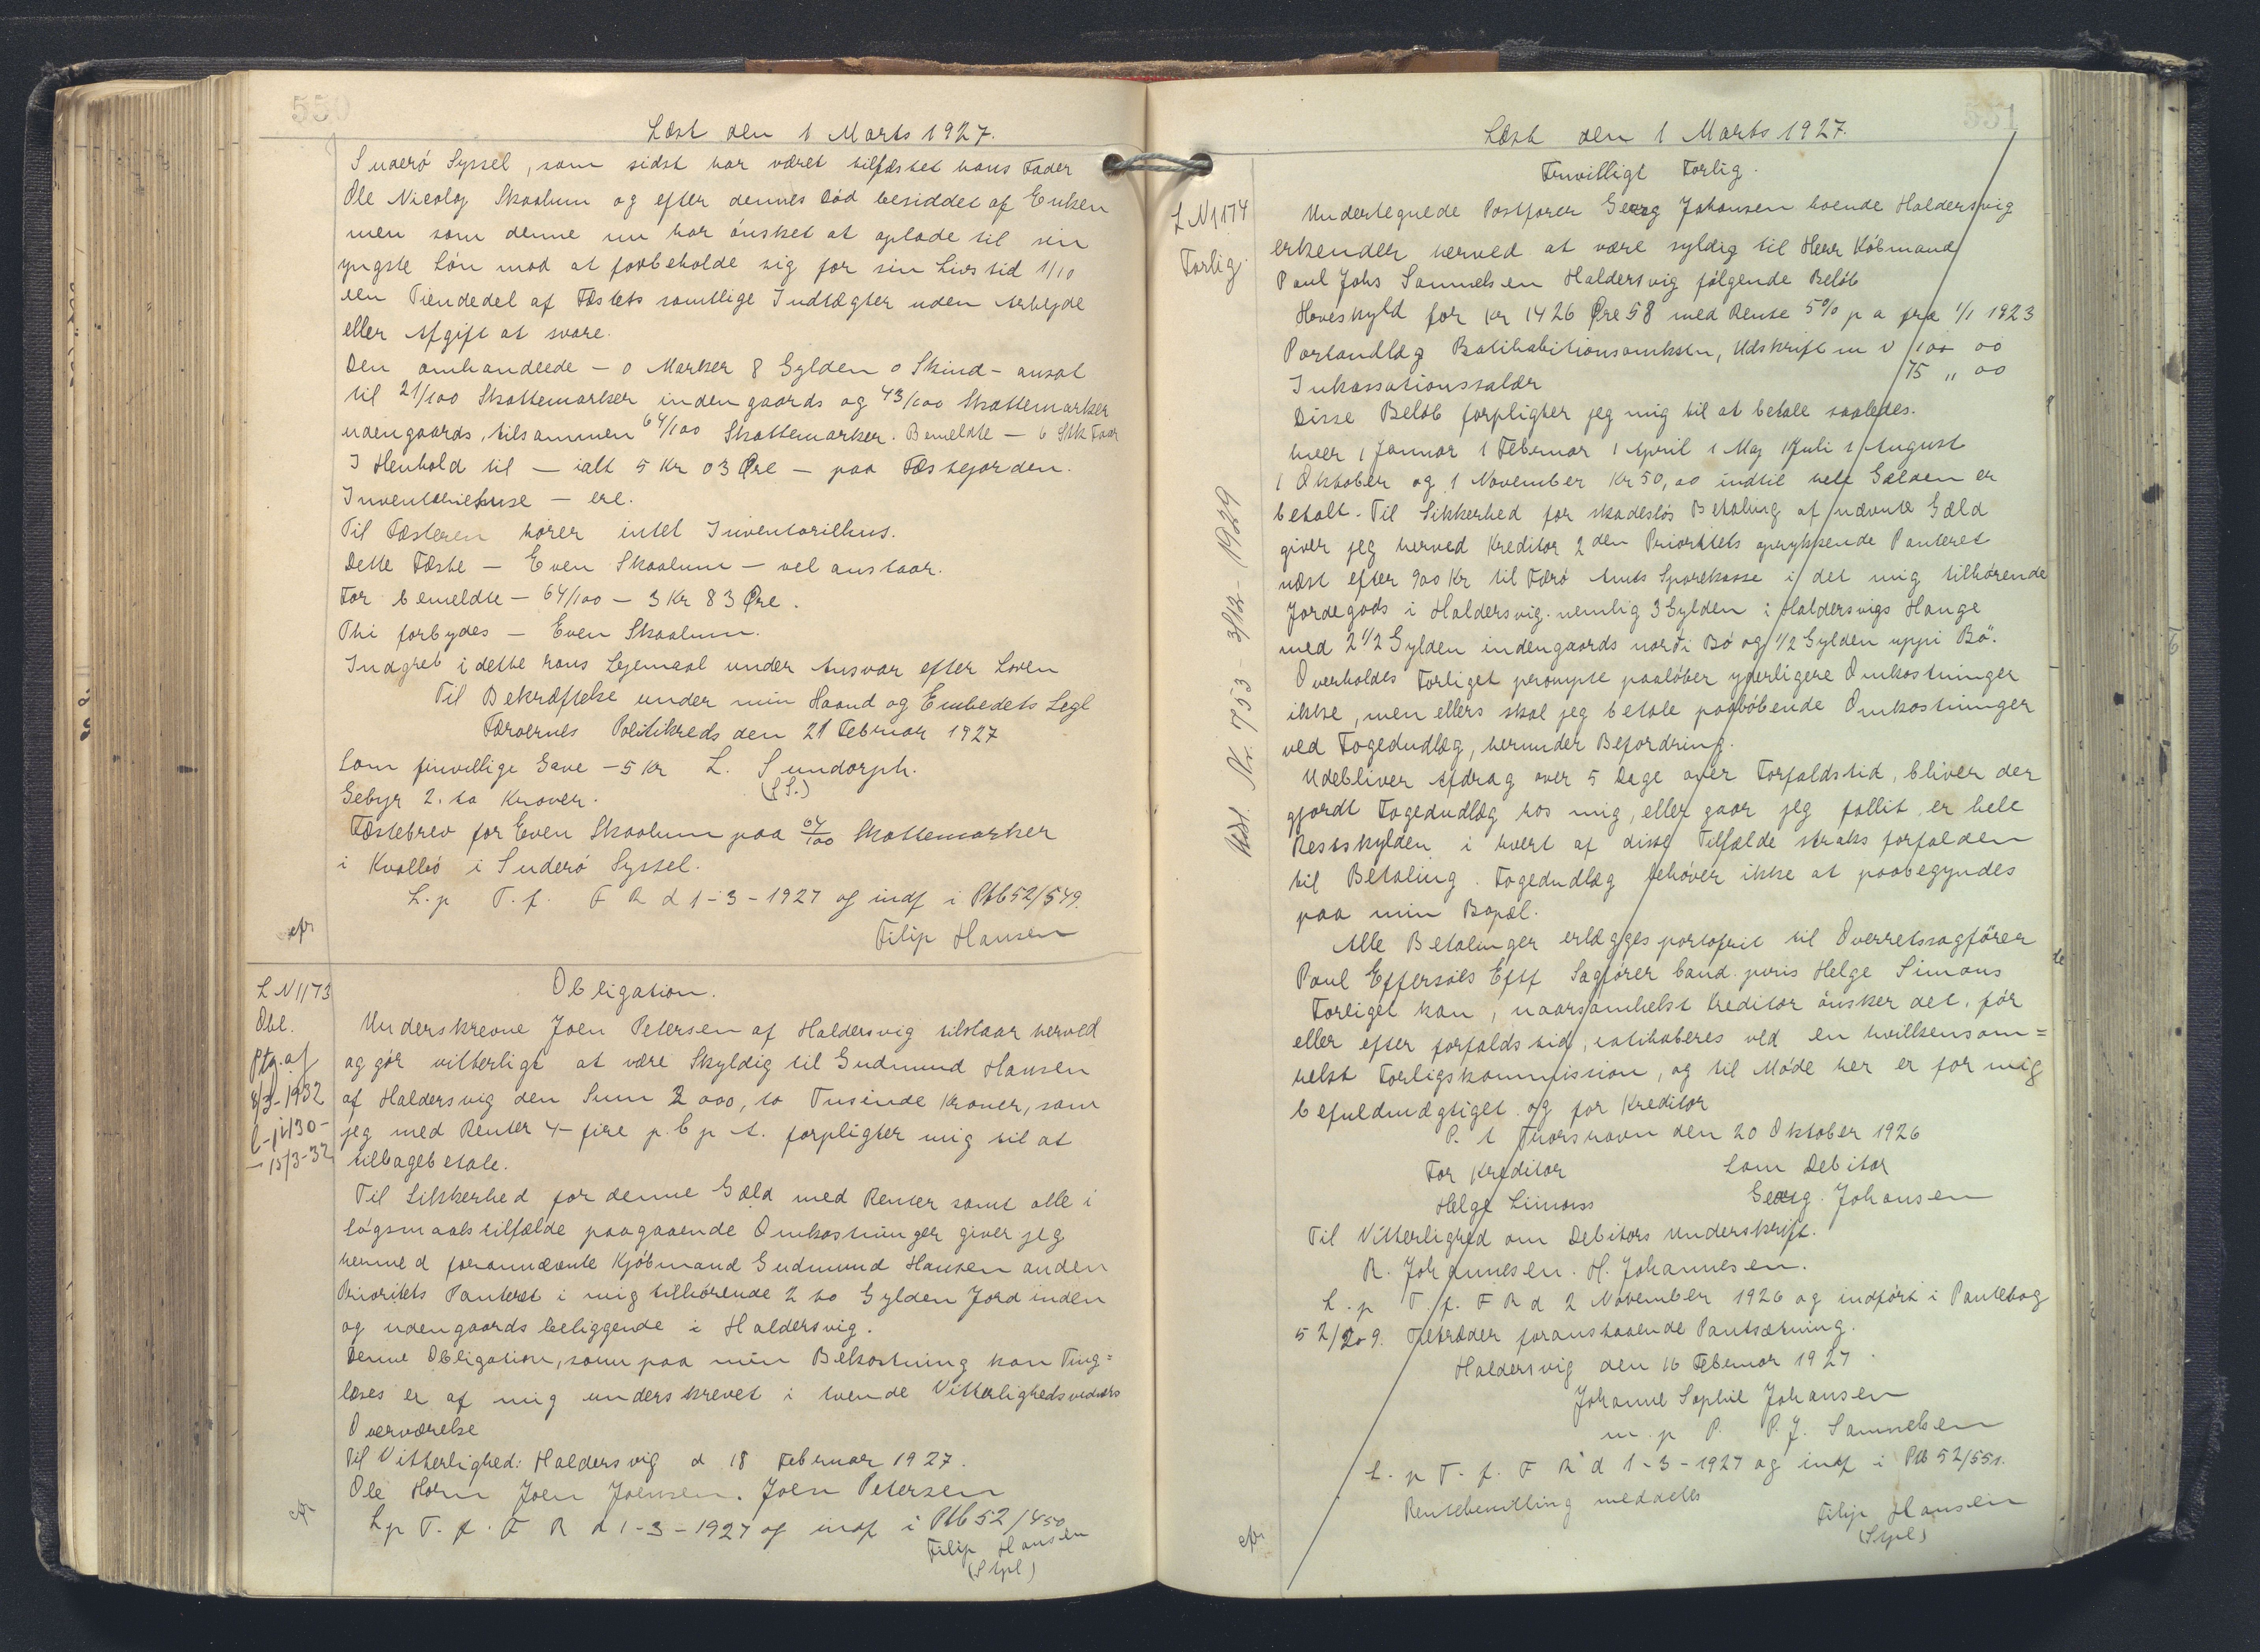 550
Læst den 1 Marts 1927.
Suderö Syssel, som sidst har været tilfæstet hans Fader
Ole Nicolaj Skaalum og efter dennes Död besiddet af Enken
men som denne nu har önsket at oplade til sin
yngste Sön mod at forbeholde sig for sin Livstid 1/10
een Tiendedel af Fæstets samtlige Indtægter uden Arbejde
eller Afgift at svare.
Den omhandlede - 0 Marker 8 Gylden 0 Skind - ansat
til 21/100 Skattemarker indengaards og 43/100 Skattemarker
udengaards, tilsammen 64/100 Skattemarker. Bemeldte - 6 Stk Faar
I Henhold til - ialt 5 Kr 03 Øre - paa Fæstejorden.
Inventariehuse - ere.
Til Fæsteren hörer intet Inventoriehus.
Dette Fæste - Even Skaalum - vel anstaar.
For bemeldte - 64/100 - 3 Kr 83 Øre.
Thi forbydes - Even Skaalum.
Indgreb i dette hans Lejemaal under Ansvar efter Loven
Til Bekræftelse under min Haand og Embedets Segl
Færoernes Politikreds den 21 Februar 1927
Som frivillige Gave - 5 Kr L. Sundorph.
Gebyr 2. to Kroner. (LS.)
Fæstebrev for Even Skaalum paa 64/100 Skattemarker
i Kvalbö i Suderö Syssel.
L. p T. f. F R d 1-3-1927 og indf i Ptb 52/549.
Filip Hansen
L N 1173
Obl.
Ptg. af
8/3-1932
15/3-32
Obligation.
Underskrevne Joen Petersen af Haldersvig tilstaar herved
og gör vitterligt at være Skyldig til Gudmund Hansen
af Haldersvig den Sum 2000, to Tusinde Kroner, som
jeg med Renter 4 - fire p. C p A. forpligter mig til at
tilbagebetale.
Til Sikkerhed for denne Gæld med Renter samt alle i
Sögsmaalstilfælde paagaaende Omkostninger giver jeg
hermed forannævnte Kjöbmand Gudmund Hansen anden
Prioritets Panteret i mig tilhörende 2 to Gylden Jord inden
og udengaards beliggende i Haldersvig.
Denne Obligation, som paa min Bekostning kan Ting=
læses er af mig underskrevet i tvende Vitterlighedsvidners
Overværelse
Til Vitterlighed: Haldersvig d 18 Februar 1927.
Ole Horn Joen Joensen. Joen Petersen
L p T. f. F R d 1-3-1927 og indf i Ptb 52/450
Filip Hansen
551
Læst den 1 Marts 1927.
L N 1174
Forlig.
Frivilligt Forlig.
Undertegnede Postförer Georg Johansen boende Haldersvig
erkender herved at være syldig til Herr Köbmand
Poul Johs Samuelsen Haldersvig fölgende Belöb
Hoveskyld for Kr 1426 Øre 58 med Rente 5% p a fra 1/1 1923
Portoudlæg Ratihabitionsomkstn, Udskrift m v 100 00
Inkassationssalær 75 " 00
Disse Belöb forpligter jeg mig til at betale saaledes.
hver 1 Januar 1 Februar 1 April 1 Maj 1 Juli 1 August
1 Oktober og 1 November Kr 50,00 indtil hele Gælden er
betalt. Til Sikkerhed for skadeslös Betaling af nævnte Gæld
giver jeg herved Kreditor 2 den Prioritets oprykkende Panteret
næst efter 900 Kr til Færö Amts Sparekasse i det mig tilhörende
Jordegods i Haldersvig. nemlig 3 Gylden i Haldersvigs Hauge
med 2 1/2 Gylden indengaards norði Bö og 1/2 Gylden uppi Bö.
Overholdes Forliget prompte paalöber yderligere Omkostninger
ikke, men ellers skal jeg betale paalöbende Omkostninger
ved Fogedudlæg, herunder Befordring.
Udebliver Afdrag over 5 Dage over Forfaldstid, bliver der
gjordt Fogedudlæg hos mig, eller gaar jeg fallit, er hele
Restskylden i hvert af disse Tilfælde straks forfalden
til Betaling. Fogedudlæg behöver ikke at paabegyndes
paa min Bopæl.
Alle Betalinger erlægges portofrit til Overretssagförer
Poul Effersöes Eftf Sagförer Cand. juris Helge Simons
Forliget kan, naarsomhelst Kreditor önsker det, för
eller efter forfaldstid, ratihaberes ved en hvilkensom=
helst Forligskommission, og til Möde her er for mig
befuldmægtiget og for Kreditor
P. t Thorshavn den 20 Oktober 1926
For Kreditor Som Debitor
Helge Simons Georg. Johansen
Til Vitterlighed om Debitors Underskrift.
R. Johannesen. H. Johannesen.
L. p T. f. F R d 2 November 1926 og indfört i Pantebog
52/209. Tiltræder foranstaaende Pantsætning.
Haldersvig den 16 Februar 1927.
Johanne Sophie Johansen
m. p P. P. J. Samuelsen
L. p T. f. F R d 1-3-1927 og indf i Ptb 52/551.
meddeles
Filip Hansen